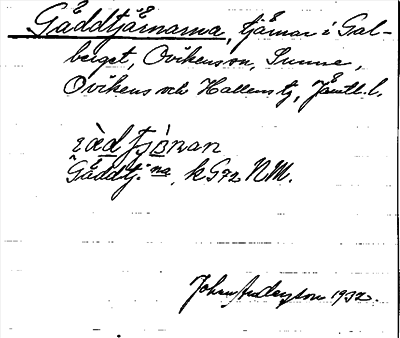 Gåddtjärnarna, tjärnar i Gal-
berget, Ovikensson, Sunne,
Ovikens och Hallens tg, Jämtl. l.
Gåddtj:na, k G72 N.M.
Johan Andersson 1932.